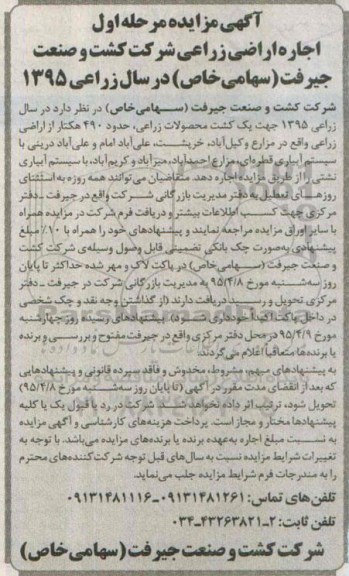 آگهی مزایده مرحله اول
اجاره اراضی زراعی شرکت کشت و صنعت
جیرفت (سهامی خاص) در سال زراعی ۱۳۹۵
شرکت کشت و صنعت جیرفت (سـهامی خاص) در نظر دارد در سال
زراعی ۱۳۹۵ جهت یک کشت محصولات زراعی، حدود ۴۹۰ هکتار از اراضی
زراعی واقع در مزارع وکیل‌آباد، خریشت، علی‌آباد امام و علی‌آباد درینی با
سیستم آبیاری قطره‌ای، مزارع احمدآباد، میرآباد و کریم‌آباد، با سیستم آبیاری
نشتی را از طریق مزایده اجاره دهد. متقاضیان می‌توانند همه روزه به استثنای
روزهـای تعطیل به دفتر مدیریت بازرگانی شـرکت واقع در جیرفت ـ دفتر
مرکزی جهت کسب اطلاعات بیشتر و دریافت فرم شرکت در مزایده همراه
با سایر اوراق مزایده مراجعه نمایند و پیشنهادهای خود را همراه با ۱۰٪ مبلغ
پیشنهادی به‌صورت چک بانکی تضمینی قابل وصول وسیله‌ی شرکت کشت
و صنعت جیرفت (سـهامی خاص) در پاکت لاک و مهر شده حداکثر تا پایان
روز سه‌شنبه مورخ ۹۵/۴/۸ به مدیریت بازرگانی شرکت در جیرفت ـ دفتر
مرکزی تحویل و رسید دریافت دارند. (از گذاشتن وجه نقد و چک شخصی
در داخل پاکت اکیداً خودداری شـود) پیشنهادهای رسیده روز چهارشنبه
مورخ ۹۵/۴/۹ در محل دفتر مرکزی واقع در جیرفت مفتوح و بررسی و برنده
یا برنده‌ها متعاقباً اعلام می‌گردند.
به پیشنهادهای مبهم، مشروط، مخدوش و فاقد سپرده قانونی و پیشنهادهایی
که بعد از انقضای مدت مقرر در آگهی (تا پایان روز سه‌شنبه مورخ ۹۵/۴/۸)
تحویل شود، ترتیب اثر داده نخواهد شـد. شـرکت در رد یا قبول یک یا کلیه
پیشنهادها مختار و مجاز است. پرداخت هزینه‌های کارشناسی و آگهی مزایده
به نسـبت مبلغ اجاره به‌عهده برنده یا برنده‌های مزایده می‌باشد. با توجه به
تغییرات شرایط مزایده نسبت به سال‌های قبل توجه شرکت‌کننده‌های محترم
را به مندرجات فرم شرایط مزایده جلب می‌نماید.
تلفن‌های تماس: ۰۹۱۳۱۴۸۱۲۶۱ـ۰۹۱۳۱۴۸۱۱۱۶
تلفن ثابت: ۲ـ۴۳۲۶۳۸۲۱ـ۰۳۴
شرکت کشت و صنعت جیرفت (سهامی خاص)